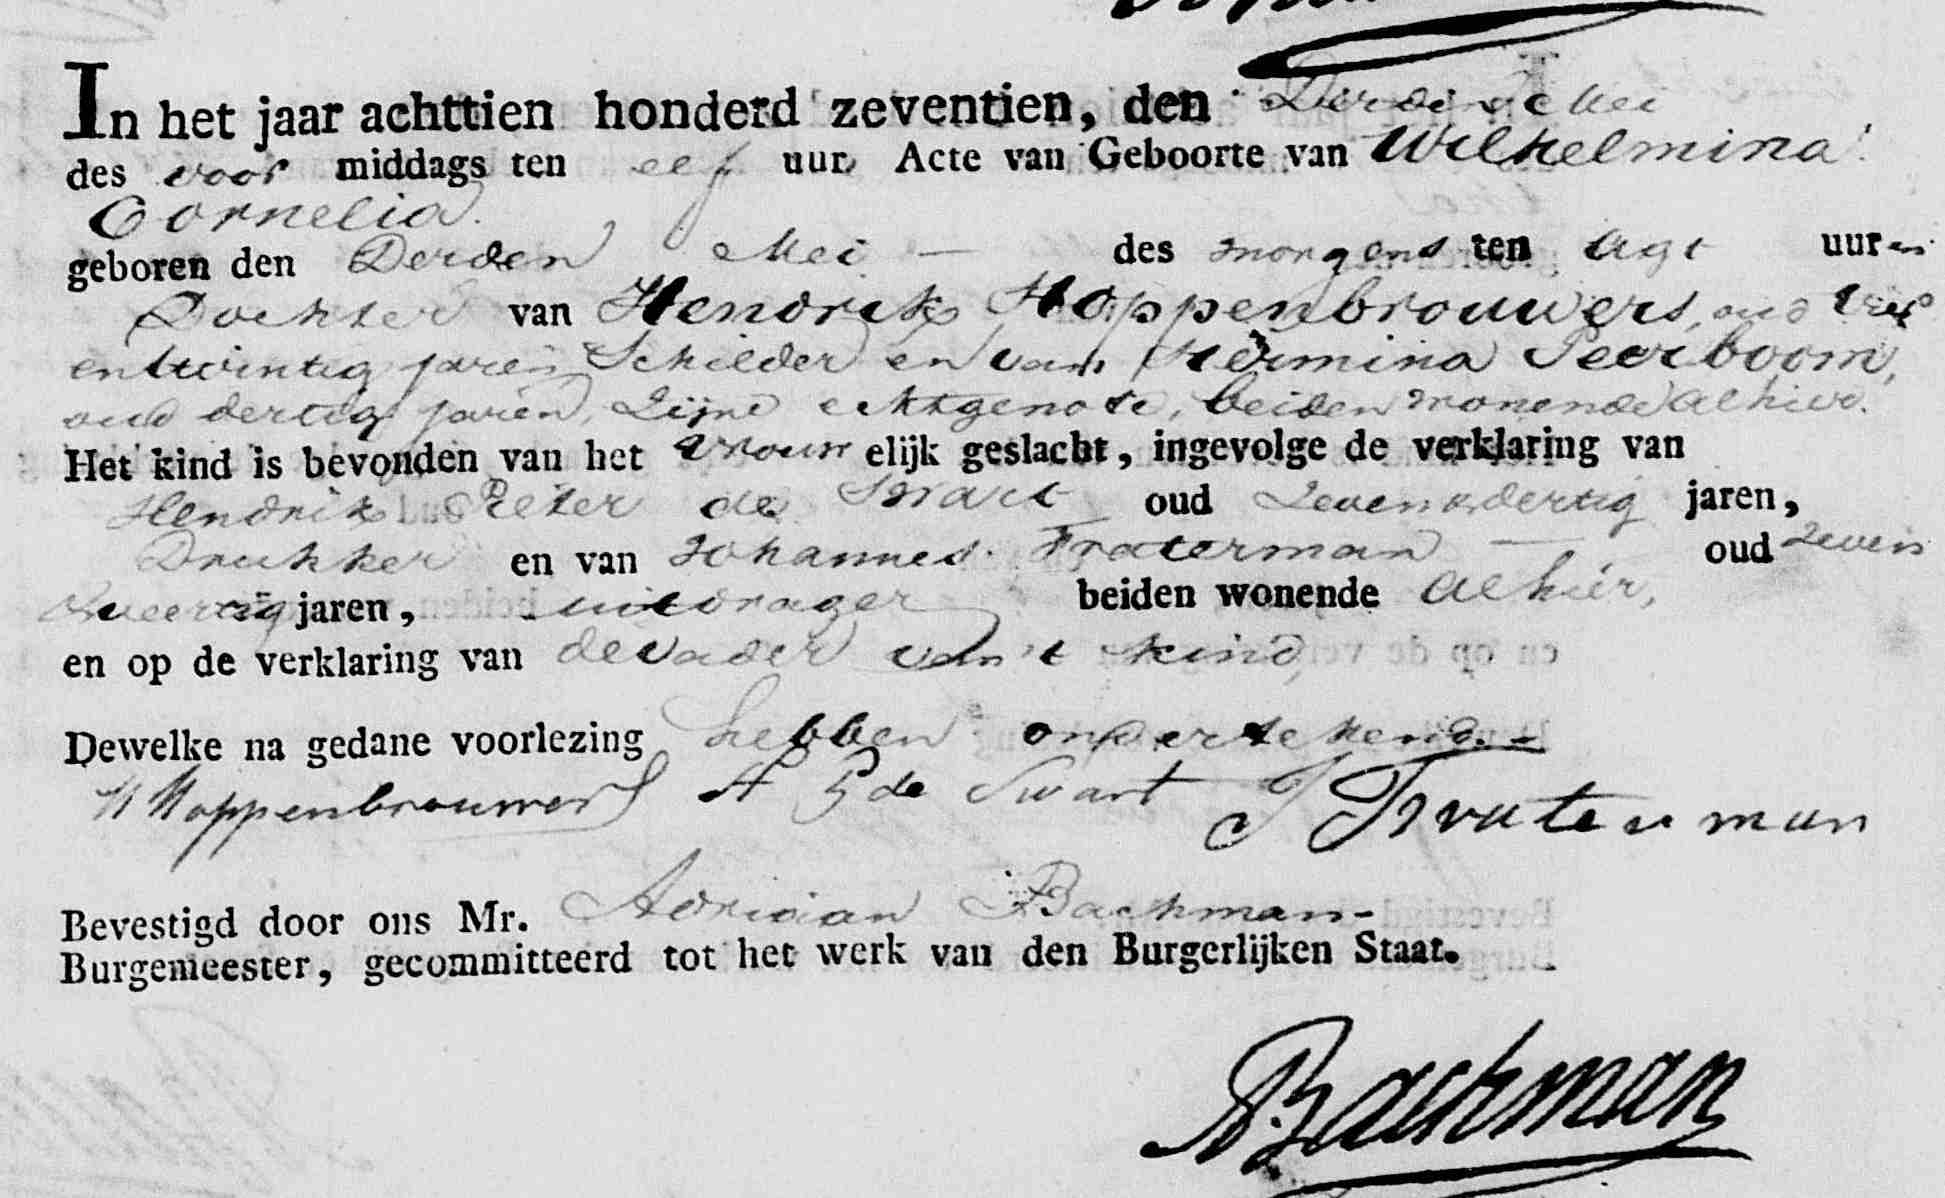 In het jaar achttien honderd zeventien, den Mei
des voor middags ten elf uur Acte van Geboorte van Wilhelmina
Cornelia.
geboren den Derden Mei — des morgens ten Agt uuren
Dochter van Hendrik Hoppenbrouwers, oud
entwintig jaren Schilder en van Hermina Peerboom,
oud dertig jaren, Zijne echtgenote, beiden wonende alhier.
Het kind is bevonden van het vrouw elijk geslacht, ingevolge de verklaring van
Hendrik Pieter de Swart oud Zevenendertig jaren,
Drukker en van Johannes Fraterman — oud Zeven
&veertig jaren, uitdrager beiden wonende alhier,
en op de verklaring van de Vader van 't kind,
Dewelke na gedane voorlezing hebben ondertekend. -
H Hoppenbrouwers H P de Swart J Fraterman
Bevestigd door ons Mr. Adriaan Bachman-
Burgemeester, gecommitteerd tot het werk van den Burgerlijken Staat.
ABachman